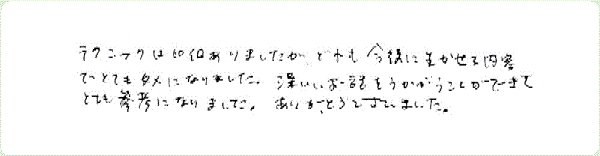 テクニックは60個ありましたが、どれも今後に生かせる内容
でとてもタメになりました。深いお話をうかがうことができて
とても参考になりました。ありがとうございました。